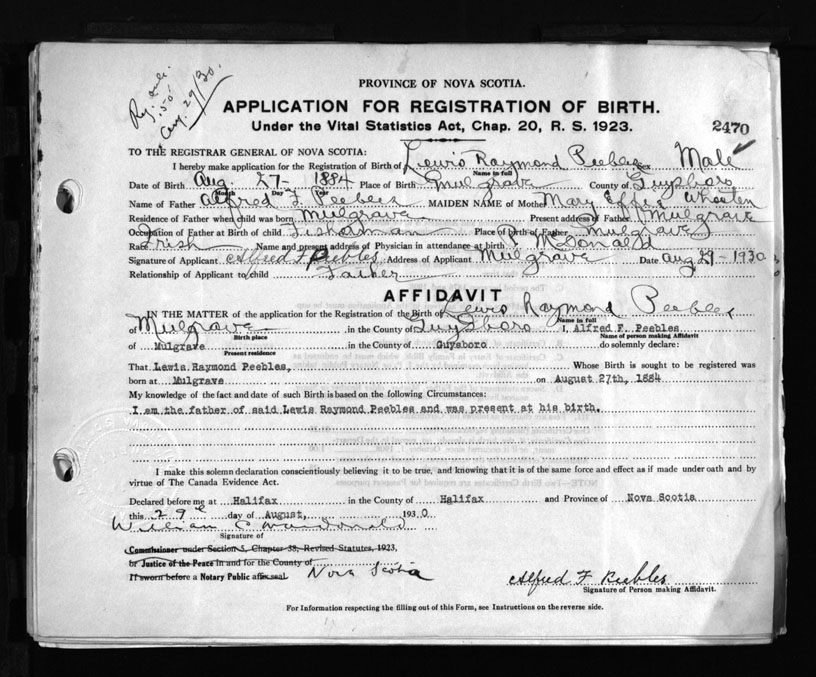 Reg. only.
.50
Aug. 29/30.
PROVINCE OF NOVA SCOTIA.
APPLICATION FOR REGISTRATION OF BIRTH.
Under the Vital Statistics Act, Chap. 20, R. S. 1923.
2470
TO THE REGISTRAR GENERAL OF NOVA SCOTIA:
I hereby make application for the Registration of Birth of Lewis Raymond Peebles Sex Male
Name in full
Date of Birth Aug 27- 1884 Place of Birth Mulgrave County of Guysboro
Month Day Year
Name of Father Alfred F. Peebles MAIDEN NAME of Mother Mary Effie Wheeten
Residence of Father when child was born Mulgrave Present address of Father Mulgrave
Occupation of Father at Birth of child Fisherman Place of birth of Father Mulgrave
Race Irish Name and present address of Physician in attendance at birth P. McDonald
Signature of Applicant Alfred F Peebles Address of Applicant Mulgrave Date Aug 29-1930
Relationship of Applicant to child Father
AFFIDAVIT
IN THE MATTER of the application for the Registration of the Birth of Lewis Raymond Peebles
Name in full
of Mulgrave in the County of Guysboro I, Alfred F. Peebles
Birth place Name of person making Affidavit
of Mulgrave in the County of Guysboro do solemnly declare:
Present residence
That Lewis Raymond Peebles, Whose Birth is sought to be registered was
born at Mulgrave on August 27th, 1884
My knowledge of the fact and date of such Birth is based on the following Circumstances:
I am the father of said Lewis Raymond Peebles and was present at his birth.
I make this solemn declaration conscientiously believing it to be true, and knowing that it is of the same force and effect as if made under oath and by
virtue of The Canada Evidence Act.
Declared before me at Halifax in the County of Halifax and Province of Nova Scotia
this 29th day of August, 1930
William C Macdonald
Signature of
Commissioner under Section 5, Chapter 38, Revised Statutes, 1923,
or Justice of the Peace in and for the County of
If sworn before a Notary Public affix seal. Nova Scotia
Alfred F Peebles
Signature of Person making Affidavit.
For Information respecting the filling out of this Form, see Instructions on the reverse side.